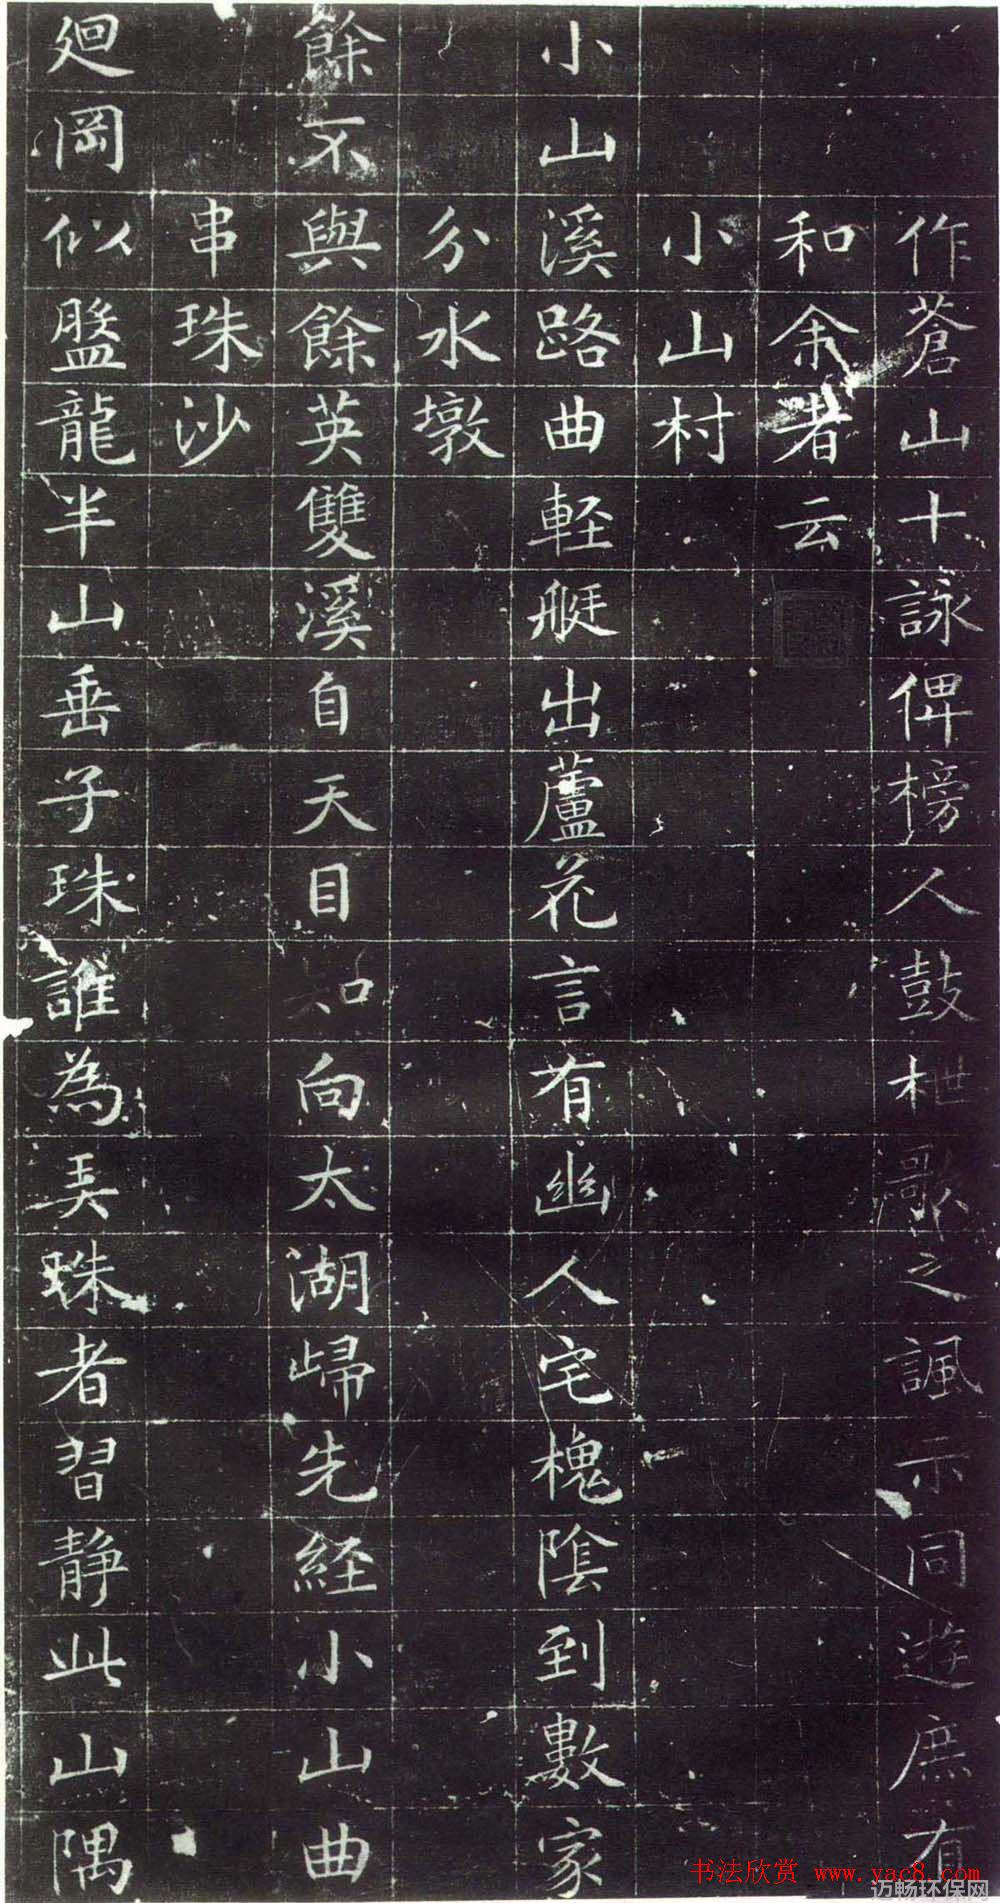 作蒼山十詠俾榜人鼓枻歌之諷示同遊庶有
和余者云
小山村
小山溪路曲輕艇出蘆花言有幽人宅槐陰到數家
分水墩
餘不與餘英雙溪自天目知向太湖歸先經小山曲
串珠沙
廻岡似盤龍半山垂子珠誰為弄珠者習靜此山隅
书法欣赏 www.yac8.com
迈畅环保网